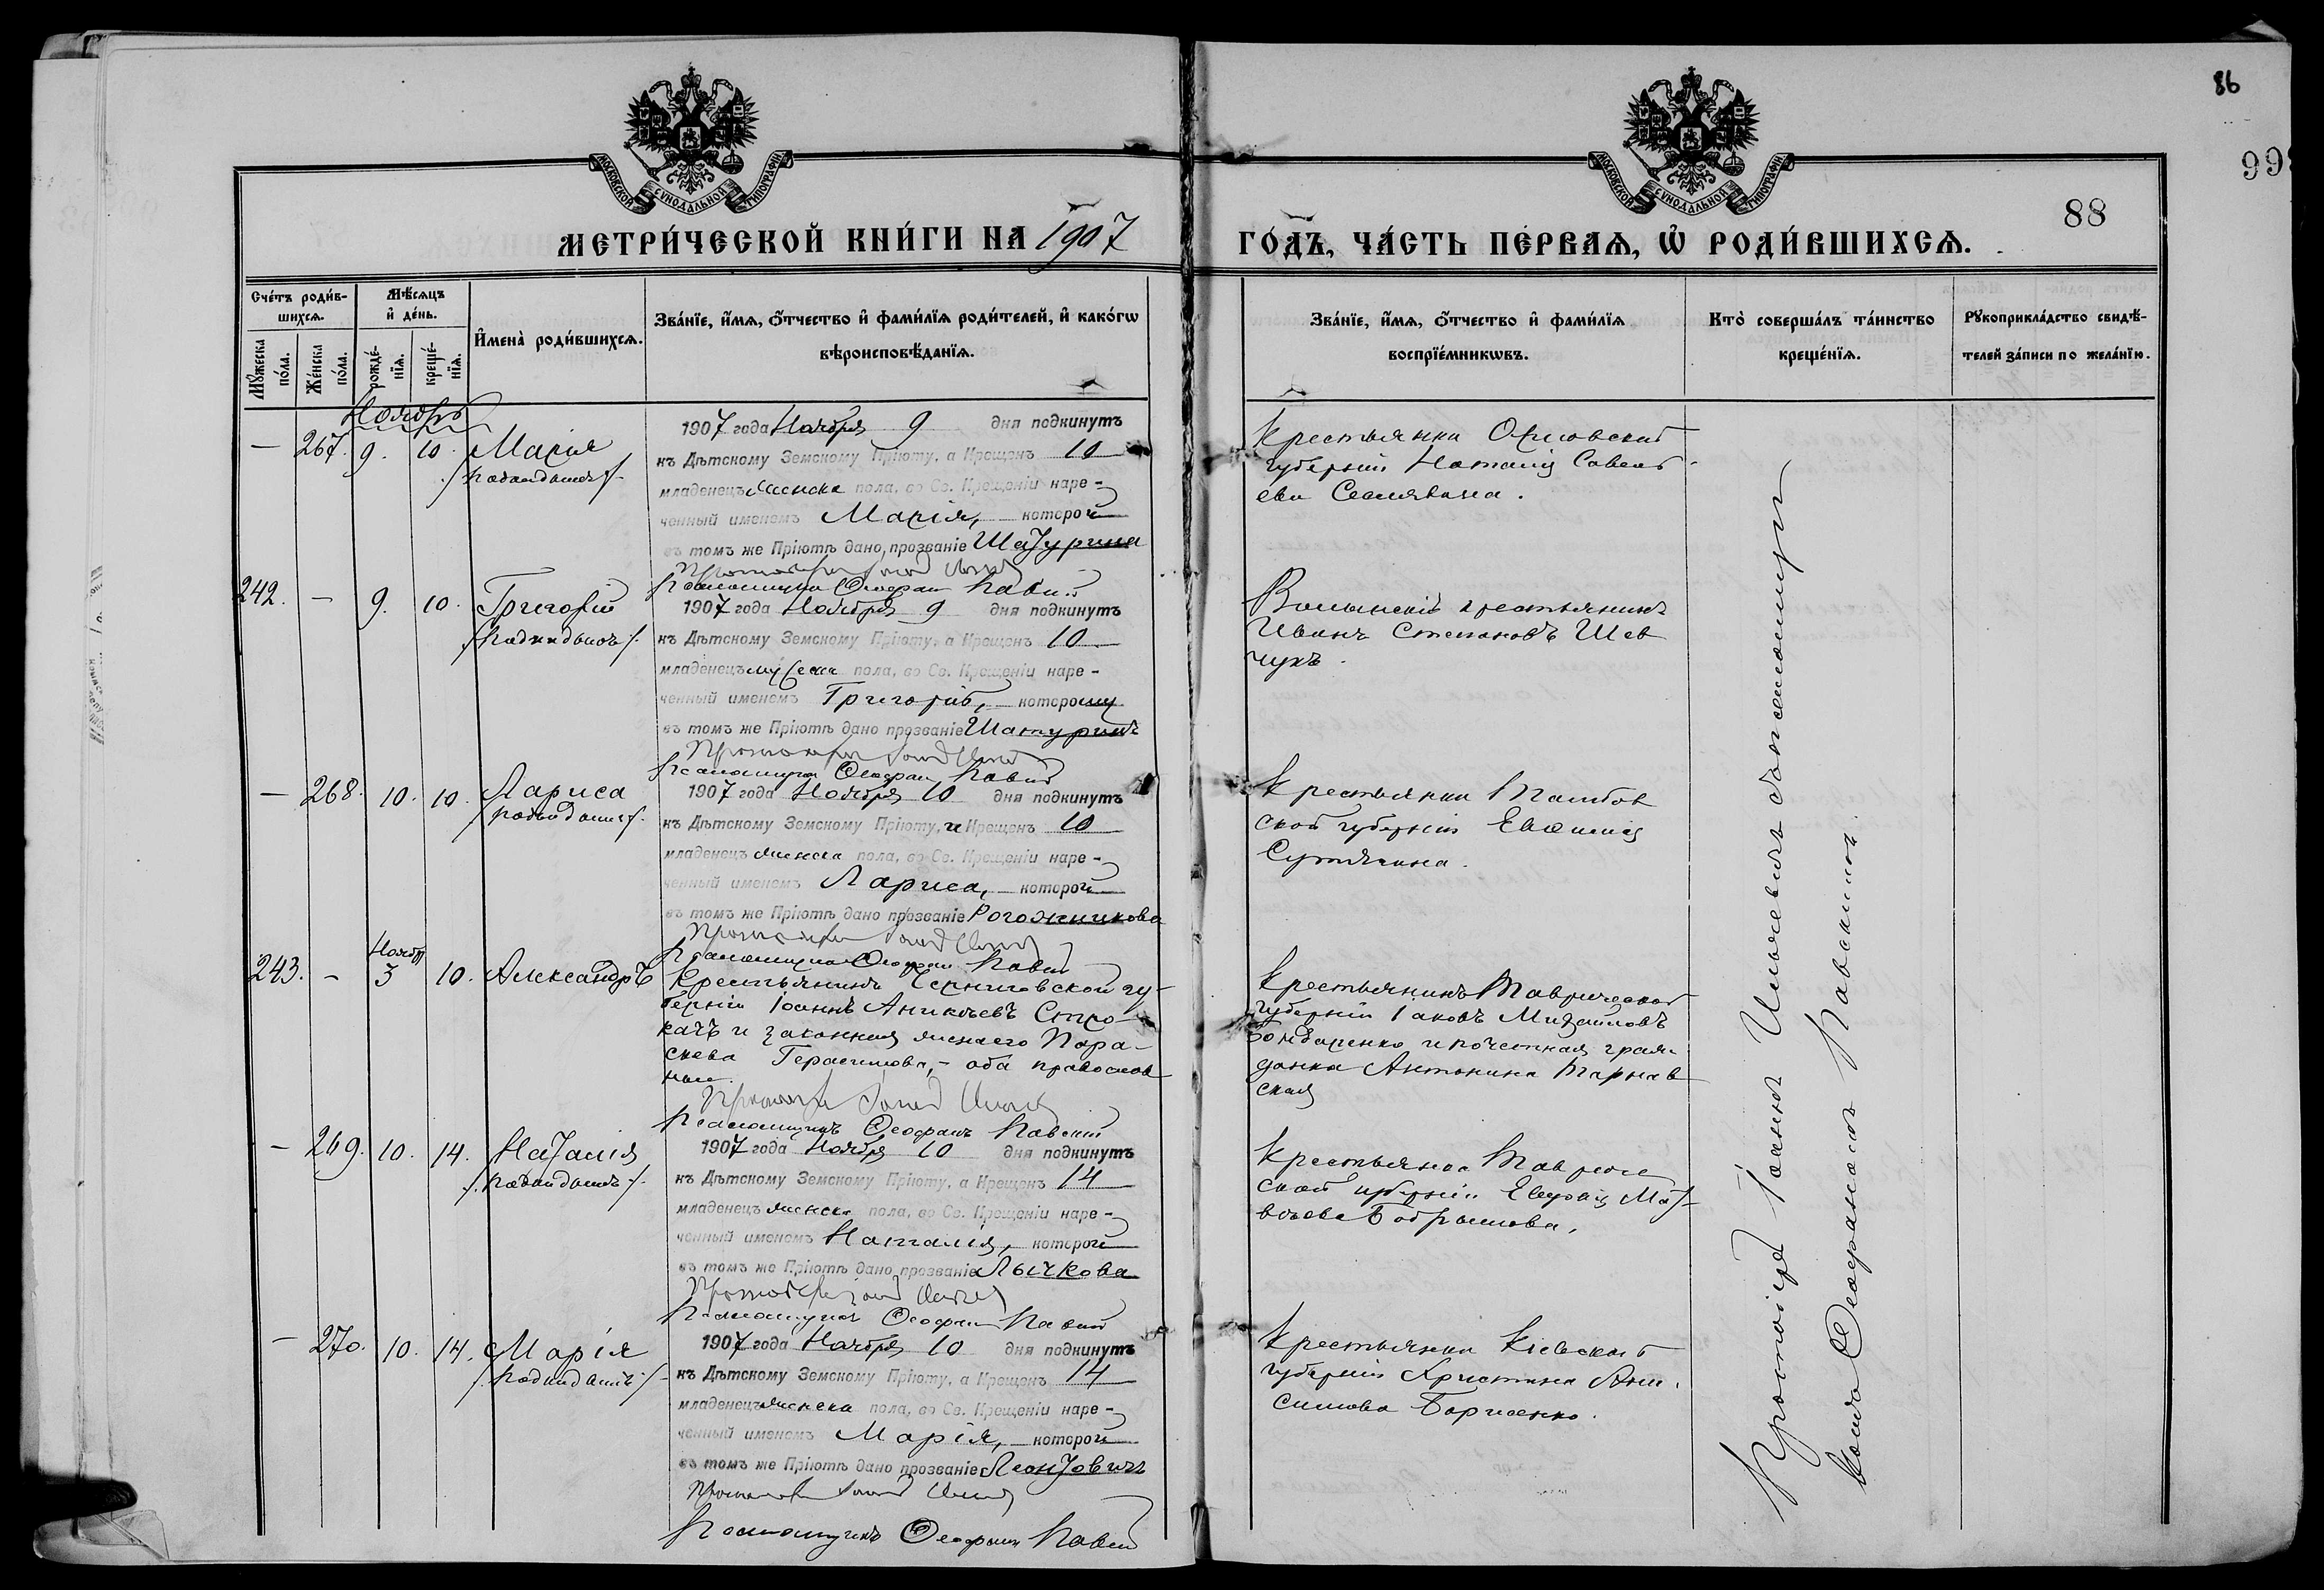 86
998
88
МОСКОВСКОЙ СѴНОДАЛЬНОЙ ТИПОГРАФІИ
МОСКОВСКОЙ СѴНОДАЛЬНОЙ ТИПОГРАФІИ
МЕТРИ́ЧЕСКОЙ КНИ́ГИ НА 1907
ГО́ДЪ, ЧА́СТЬ ПЕ́РВАѦ, Ѡ҆ РОДИ́ВШИХСѦ.
Сче́тъ роди́в-
шихсѧ.
Мꙋ́жеска по́ла.
Же́нска по́ла.
Мѣ́сѧцъ
и҆ де́нь.
рожде́-
нїѧ.
креще́-
нїѧ.
И҆мена̀ роди́вшихсѧ.
Зва́нїе, и҆́мѧ, ѻ҆́тчество и҆ фами́лїѧ роди́телей, и҆ како́гѡ
вѣроисповѣ́данїѧ.
Зва́нїе, и҆́мѧ, ѻ҆́тчество и҆ фами́лїѧ
воспрїе́мникѡвъ.
Кто̀ соверша́лъ та́инство
креще́нїѧ.
Рꙋкоприкла́дство свидѣ́-
телей за́писи по жела́нїю.
Ноябрь
— 267. 9. 10. Марія
/подкидышъ/.
1907 года Ноября 9 дня подкинутъ
къ Дѣтскому Земскому Пріюту, а Крещенъ 10
младенецъ женска пола, во Св. Крещеніи наре-
ченный именемъ Марія, которой
въ томъ же Пріютѣ дано прозваніе Шатурина
Псаломщикъ Ѳеофанъ
Крестьянка Орловской
губерніи Наталія Савель
ева
242. — 9. 10. Григорій
/подкидышъ/.
1907 года Ноября 9 дня подкинутъ
къ Дѣтскому Земскому Пріюту, а Крещенъ 10
младенецъ мужеска пола, во Св. Крещеніи наре-
ченный именемъ Григорій, которому
въ томъ же Пріютѣ дано прозваніе Шатуринъ
Псаломщикъ Ѳеофанъ
Волынскій крестьянинъ
Иванъ Степановъ Шев
чукъ.
— 268. 10. 10. Лариса
/подкидышъ/.
1907 года Ноября 10 дня подкинутъ
къ Дѣтскому Земскому Пріюту, и Крещен 10
младенецъ женска пола, во Св. Крещеніи наре-
ченный именемъ Лариса, которой
въ томъ же Пріютѣ дано прозваніе Рогожникова
Псаломщикъ Ѳеофанъ
Крестьянка Тамбов
ской губерніи Евѳимія
243. — Ноября 3 10. Александръ
Крестьянинъ Черниговской гу-
берніи Іоаннъ Аникѣевъ Стро-
качъ и законная жена его Пара-
скева Герасимова, – оба православ
ные.
Псаломщикъ Ѳеофанъ
Крестьянинъ Таврической
губерніи Іаковъ Михайловъ
Бондаренко и почетная граж-
данка Антонина Тарнав
ская
— 269. 10. 14. Наталія
/подкидышъ/.
1907 года Ноября 10 дня подкинутъ
къ Дѣтскому Земскому Пріюту, а Крещенъ 14
младенецъ женска пола, во Св. Крещеніи наре-
ченный именемъ Наталія, которой
въ томъ же Пріютѣ дано прозваніе Лычкова
Псаломщикъ Ѳеофанъ
Крестьянка Тавриче
ской губерніи Мат-
вѣева
— 270. 10. 14. Марія
/подкидышъ/.
1907 года Ноября 10 дня подкинутъ
къ Дѣтскому Земскому Пріюту, а Крещенъ 14
младенецъ женска пола, во Св. Крещеніи наре-
ченный именемъ Марія, которой
въ томъ же Пріютѣ дано прозваніе Леонтовичъ
Псаломщикъ Ѳеофанъ
Крестьянка Кіевской
губерніи Христина Ани
симова Борисенко.
Протоіерей Іоаннъ съ псаломщи
комъ Ѳеофаномъ